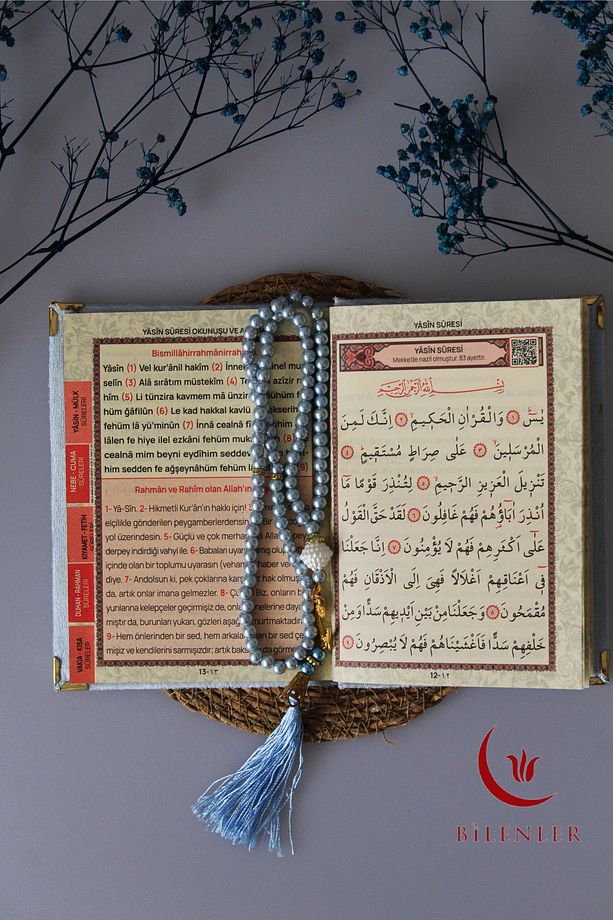 YÂSÎN SÛRESİ OKUNUŞU VE
Bismillâhirrahmânirrah
Yâsîn (1) Vel kur'ânil hakîm (2) İnne
selîn (3) Alâ sırâtım müstekîm (4)
hîm (5) Li tünzira kavmem mâ ünzir
hüm ğâfilûn (6) Le kad hakkal kavlü
fehüm lâ yü'minûn (7) İnnâ cealnâ fî
lâlen fe hiye ilel ezkâni fehüm muk (8)
cealnâ mim beyni eydîhim sedde
him sedden fe ağşeynâhüm fehüm (9)
Rahmân ve Rahîm olan Allah'ın
1- Yâ-Sîn. 2- Hikmetli Kur'ân'ın hakkı için!
elçilikle gönderilen peygamberlerdensin.
yol üzerindesin. 5- Güçlü ve çok merha
derpey indirdiği vahyi ile. 6- Babaları uyar
içinde olan bir toplumu uyarasın (ve
diye. 7- Andolsun ki, pek çoklarına karş hak olmuş
da, artık onlar imana gelmezler. 8- Biz, onların b
yunlarına kelepçeler geçirmişiz de, on dayan
mıştır da, burunları yukarı, gözleri aşağı
9- Hem önlerinden bir sed, hem arkala bir sed çe
mişiz ve kendilerini sarmışızdır; artık bak da görme
13-١٣
YÂSİN - MÜLK
SÛRELERİ
NEBE - CUMA
SÛRELERİ
KIYAMET - FETİH
SÛRELERİ
DUHAN - RAHMAN
SÛRELERİ
VAKIA - KISA
SÛRELER
YÂSÎN SÛRESİ
YÂSÎN SÛRESİ
Mekke'de nazil olmuştur. 83 ayettir.
بِسْمِ اللّٰهِ الرَّحْمٰنِ الرَّحِيمِ
يٰسٓ ﴿١﴾ وَالْقُرْاٰنِ الْحَكِيمِ ﴿٢﴾ اِنَّكَ لَمِنَ
الْمُرْسَلِينَ ﴿٣﴾ عَلٰى صِرَاطٍ مُسْتَقِيمٍ ﴿٤﴾
تَنْزِيلَ الْعَزِيزِ الرَّحِيمِ ﴿٥﴾ لِتُنْذِرَ قَوْمًا مَٓا
اُنْذِرَ اٰبَٓاؤُهُمْ فَهُمْ غَافِلُونَ ﴿٦﴾ لَقَدْ حَقَّ الْقَوْلُ
عَلٰٓى اَكْثَرِهِمْ فَهُمْ لَا يُؤْمِنُونَ ﴿٧﴾ اِنَّا جَعَلْنَا
فِٓى اَعْنَاقِهِمْ اَغْلَالًا فَهِىَ اِلَى الْاَذْقَانِ فَهُمْ
مُقْمَحُونَ ﴿٨﴾ وَجَعَلْنَا مِنْ بَيْنِ اَيْدِيهِمْ سَدًّا وَمِنْ
خَلْفِهِمْ سَدًّا فَاَغْشَيْنَاهُمْ فَهُمْ لَا يُبْصِرُونَ ﴿٩﴾
12-١٢
BİLENLER